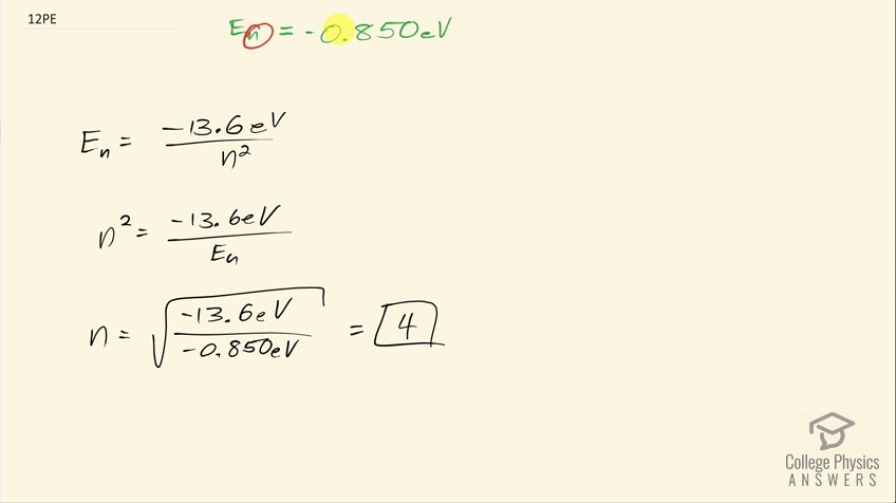 12PE
Eₙ = -0.850eV
Eₙ = -13.6eV / n²
n² = -13.6eV / Eₙ
n = √(-13.6eV / -0.850eV) = 4
College Physics
ANSWERS